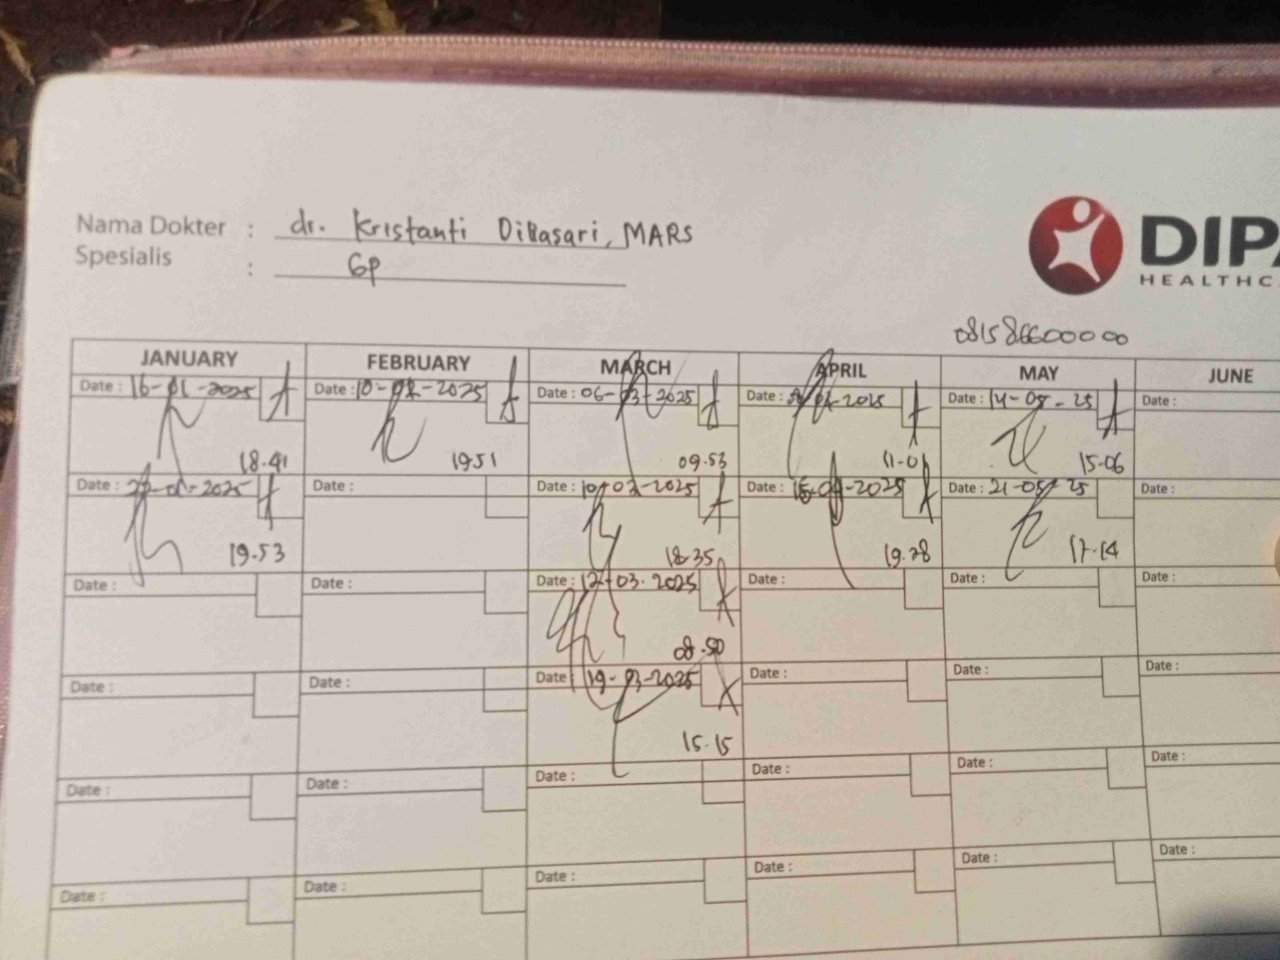 Nama Dokter : dr. Kristanti DiRasari, MARS
Spesialis : GP
DIPA
HEALTHC
081586600000
JANUARY FEBRUARY MARCH APRIL MAY JUNE
Date : 16-01-2025 Date : 10-02-2025 Date : 06-03-2025 Date : -2025 Date : 14-05-25 Date :
18.41 19.51 09.53 11.01 15.06
Date : -01-2025 Date : Date : 10-03-2025 Date : 16-04-2025 Date : 21-05-25 Date :
19.53 18.35 19.28 17.14
Date : Date : Date : 12-03-2025 Date : Date : Date :
08.50
Date : Date : Date : 19-03-2025 Date : Date : Date :
15.15
Date : Date : Date : Date : Date : Date :
Date : Date : Date : Date : Date : Date :